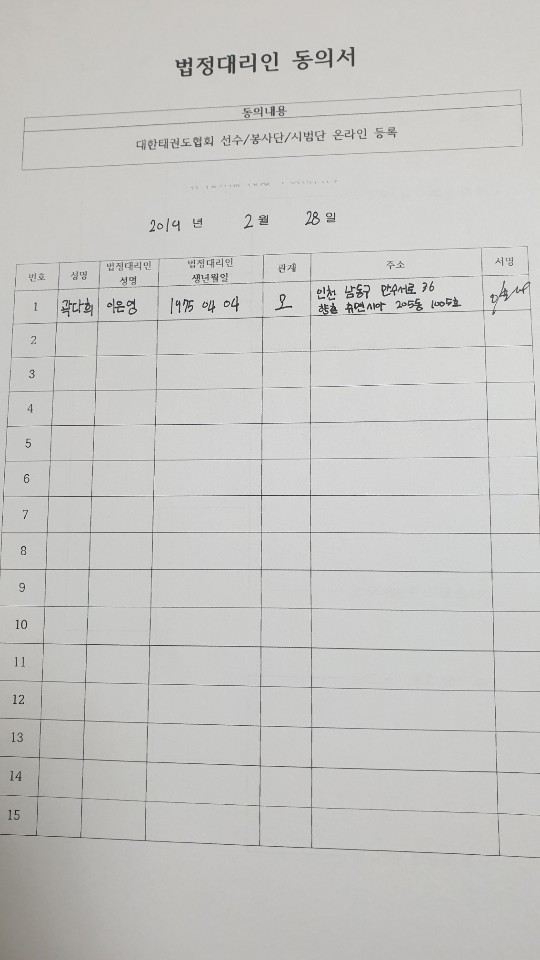 법정대리인 동의서
동의내용
대한태권도협회 선수/봉사단/시범단 온라인 등록
2019 년 2 월 28 일
번호 성명 법정대리인 성명 법정대리인 생년월일 관계 주소 서명
1 곽다희 이은영 1975 04 04 모 인천 남동구 만수서로 36
205동 1005호
2
3
4
5
6
7
8
9
10
11
12
13
14
15